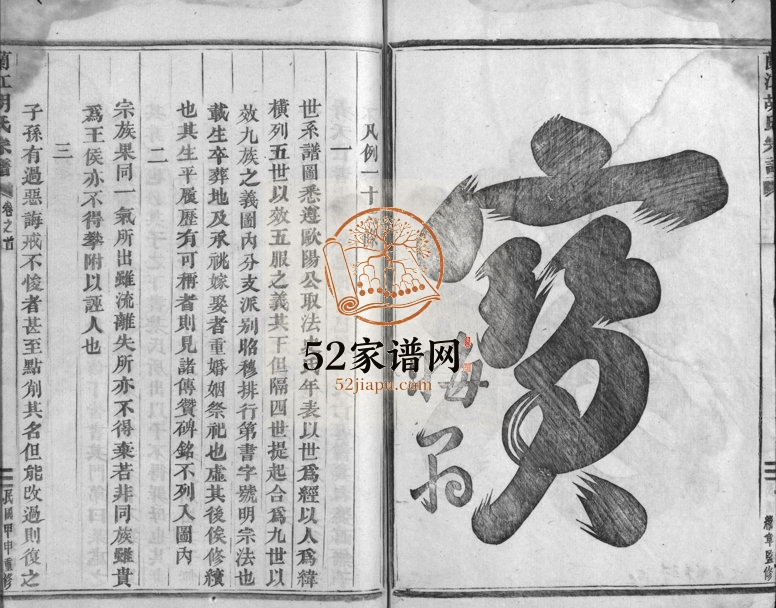 蘭江胡氏宗譜
監修
寶
翁
凡例一十
一
世系譜圖悉遵歐陽公取法年表以世爲經以人爲緯
橫列五世以效五服之義其王但隔四世提起合爲九世以
效九族之義圖內分支派別昭穆排行第書字號明宗法也
載生卒葬地及承祧嫁娶者重婚姻祭祀也虛其後俟修續
也其生平履歷有可稱者則見諸傳贊碑銘不列入圖內
二
宗族果同一氣所出雖流離失所亦不得棄若非同族雖貴
爲王侯亦不得攀附以誣人也
三
子孫有過惡誨戒不悛者甚至點削其名但能改過則復之
蘭江胡氏宗譜 卷之首 民國甲申重修
52家谱网
52jiapu.com